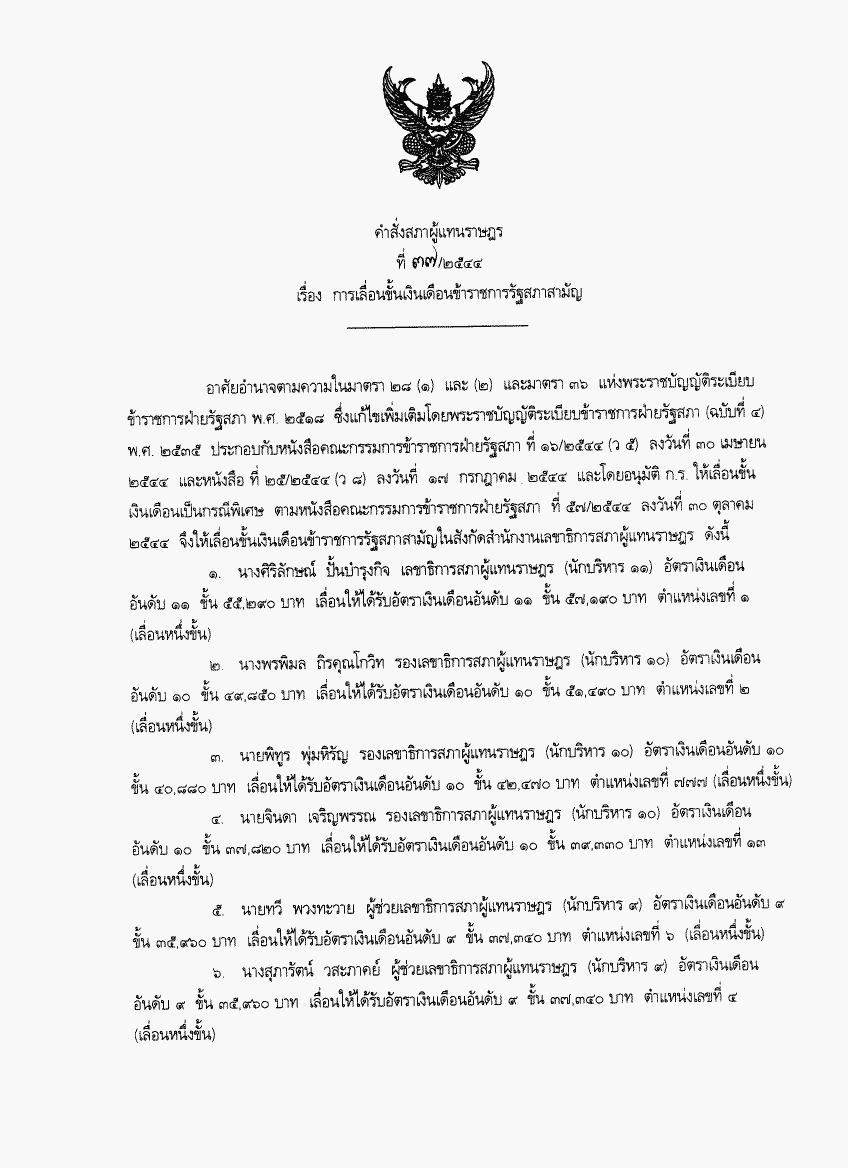 คำสั่งสภาผู้แทนราษฎร
ที่ ๓๗/๒๕๔๔
เรื่อง การเลื่อนขั้นเงินเดือนข้าราชการรัฐสภาสามัญ
อาศัยอำนาจตามความในมาตรา ๒๘ (๑) และ (๒) และมาตรา ๓๖ แห่งพระราชบัญญัติระเบียบ
ข้าราชการฝ่ายรัฐสภา พ.ศ. ๒๕๑๘ ซึ่งแก้ไขเพิ่มเติมโดยพระราชบัญญัติระเบียบข้าราชการฝ่ายรัฐสภา (ฉบับที่ ๔)
พ.ศ. ๒๕๓๕ ประกอบกับหนังสือคณะกรรมการข้าราชการฝ่ายรัฐสภา ที่ ๑๖/๒๕๔๔ (ว ๕) ลงวันที่ ๓๐ เมษายน
๒๕๔๔ และหนังสือ ที่ ๒๕/๒๕๔๔ (ว ๘) ลงวันที่ ๑๗ กรกฎาคม ๒๕๔๔ และโดยอนุมัติ ก.ร. ให้เลื่อนขั้น
เงินเดือนเป็นกรณีพิเศษ ตามหนังสือคณะกรรมการข้าราชการฝ่ายรัฐสภา ที่ ๕๗/๒๕๔๔ ลงวันที่ ๓๐ ตุลาคม
๒๕๔๔ จึงให้เลื่อนขั้นเงินเดือนข้าราชการรัฐสภาสามัญในสังกัดสำนักงานเลขาธิการสภาผู้แทนราษฎร ดังนี้
๑. นางศิริลักษณ์ ปั้นบำรุงกิจ เลขาธิการสภาผู้แทนราษฎร (นักบริหาร ๑๑) อัตราเงินเดือน
อันดับ ๑๑ ขั้น ๕๕,๒๙๐ บาท เลื่อนให้ได้รับอัตราเงินเดือนอันดับ ๑๑ ขั้น ๕๗,๑๙๐ บาท ตำแหน่งเลขที่ ๑
(เลื่อนหนึ่งขั้น)
๒. นางพรพิมล ถิรคุณโกวิท รองเลขาธิการสภาผู้แทนราษฎร (นักบริหาร ๑๐) อัตราเงินเดือน
อันดับ ๑๐ ขั้น ๔๙,๘๕๐ บาท เลื่อนให้ได้รับอัตราเงินเดือนอันดับ ๑๐ ขั้น ๕๑,๔๙๐ บาท ตำแหน่งเลขที่ ๒
(เลื่อนหนึ่งขั้น)
๓. นายพิทูร พุ่มหิรัญ รองเลขาธิการสภาผู้แทนราษฎร (นักบริหาร ๑๐) อัตราเงินเดือนอันดับ ๑๐
ขั้น ๔๐,๘๘๐ บาท เลื่อนให้ได้รับอัตราเงินเดือนอันดับ ๑๐ ขั้น ๔๒,๔๗๐ บาท ตำแหน่งเลขที่ ๗๗๗ (เลื่อนหนึ่งขั้น)
๔. นายจินดา เจริญพรรณ รองเลขาธิการสภาผู้แทนราษฎร (นักบริหาร ๑๐) อัตราเงินเดือน
อันดับ ๑๐ ขั้น ๓๗,๘๒๐ บาท เลื่อนให้ได้รับอัตราเงินเดือนอันดับ ๑๐ ขั้น ๓๙,๓๓๐ บาท ตำแหน่งเลขที่ ๑๓
(เลื่อนหนึ่งขั้น)
๕. นายทวี พวงทะวาย ผู้ช่วยเลขาธิการสภาผู้แทนราษฎร (นักบริหาร ๙) อัตราเงินเดือนอันดับ ๙
ขั้น ๓๕,๙๖๐ บาท เลื่อนให้ได้รับอัตราเงินเดือนอันดับ ๙ ขั้น ๓๗,๓๔๐ บาท ตำแหน่งเลขที่ ๖ (เลื่อนหนึ่งขั้น)
๖. นางสุภารัตน์ วสะภาคย์ ผู้ช่วยเลขาธิการสภาผู้แทนราษฎร (นักบริหาร ๙) อัตราเงินเดือน
อันดับ ๙ ขั้น ๓๕,๙๖๐ บาท เลื่อนให้ได้รับอัตราเงินเดือนอันดับ ๙ ขั้น ๓๗,๓๔๐ บาท ตำแหน่งเลขที่ ๔
(เลื่อนหนึ่งขั้น)